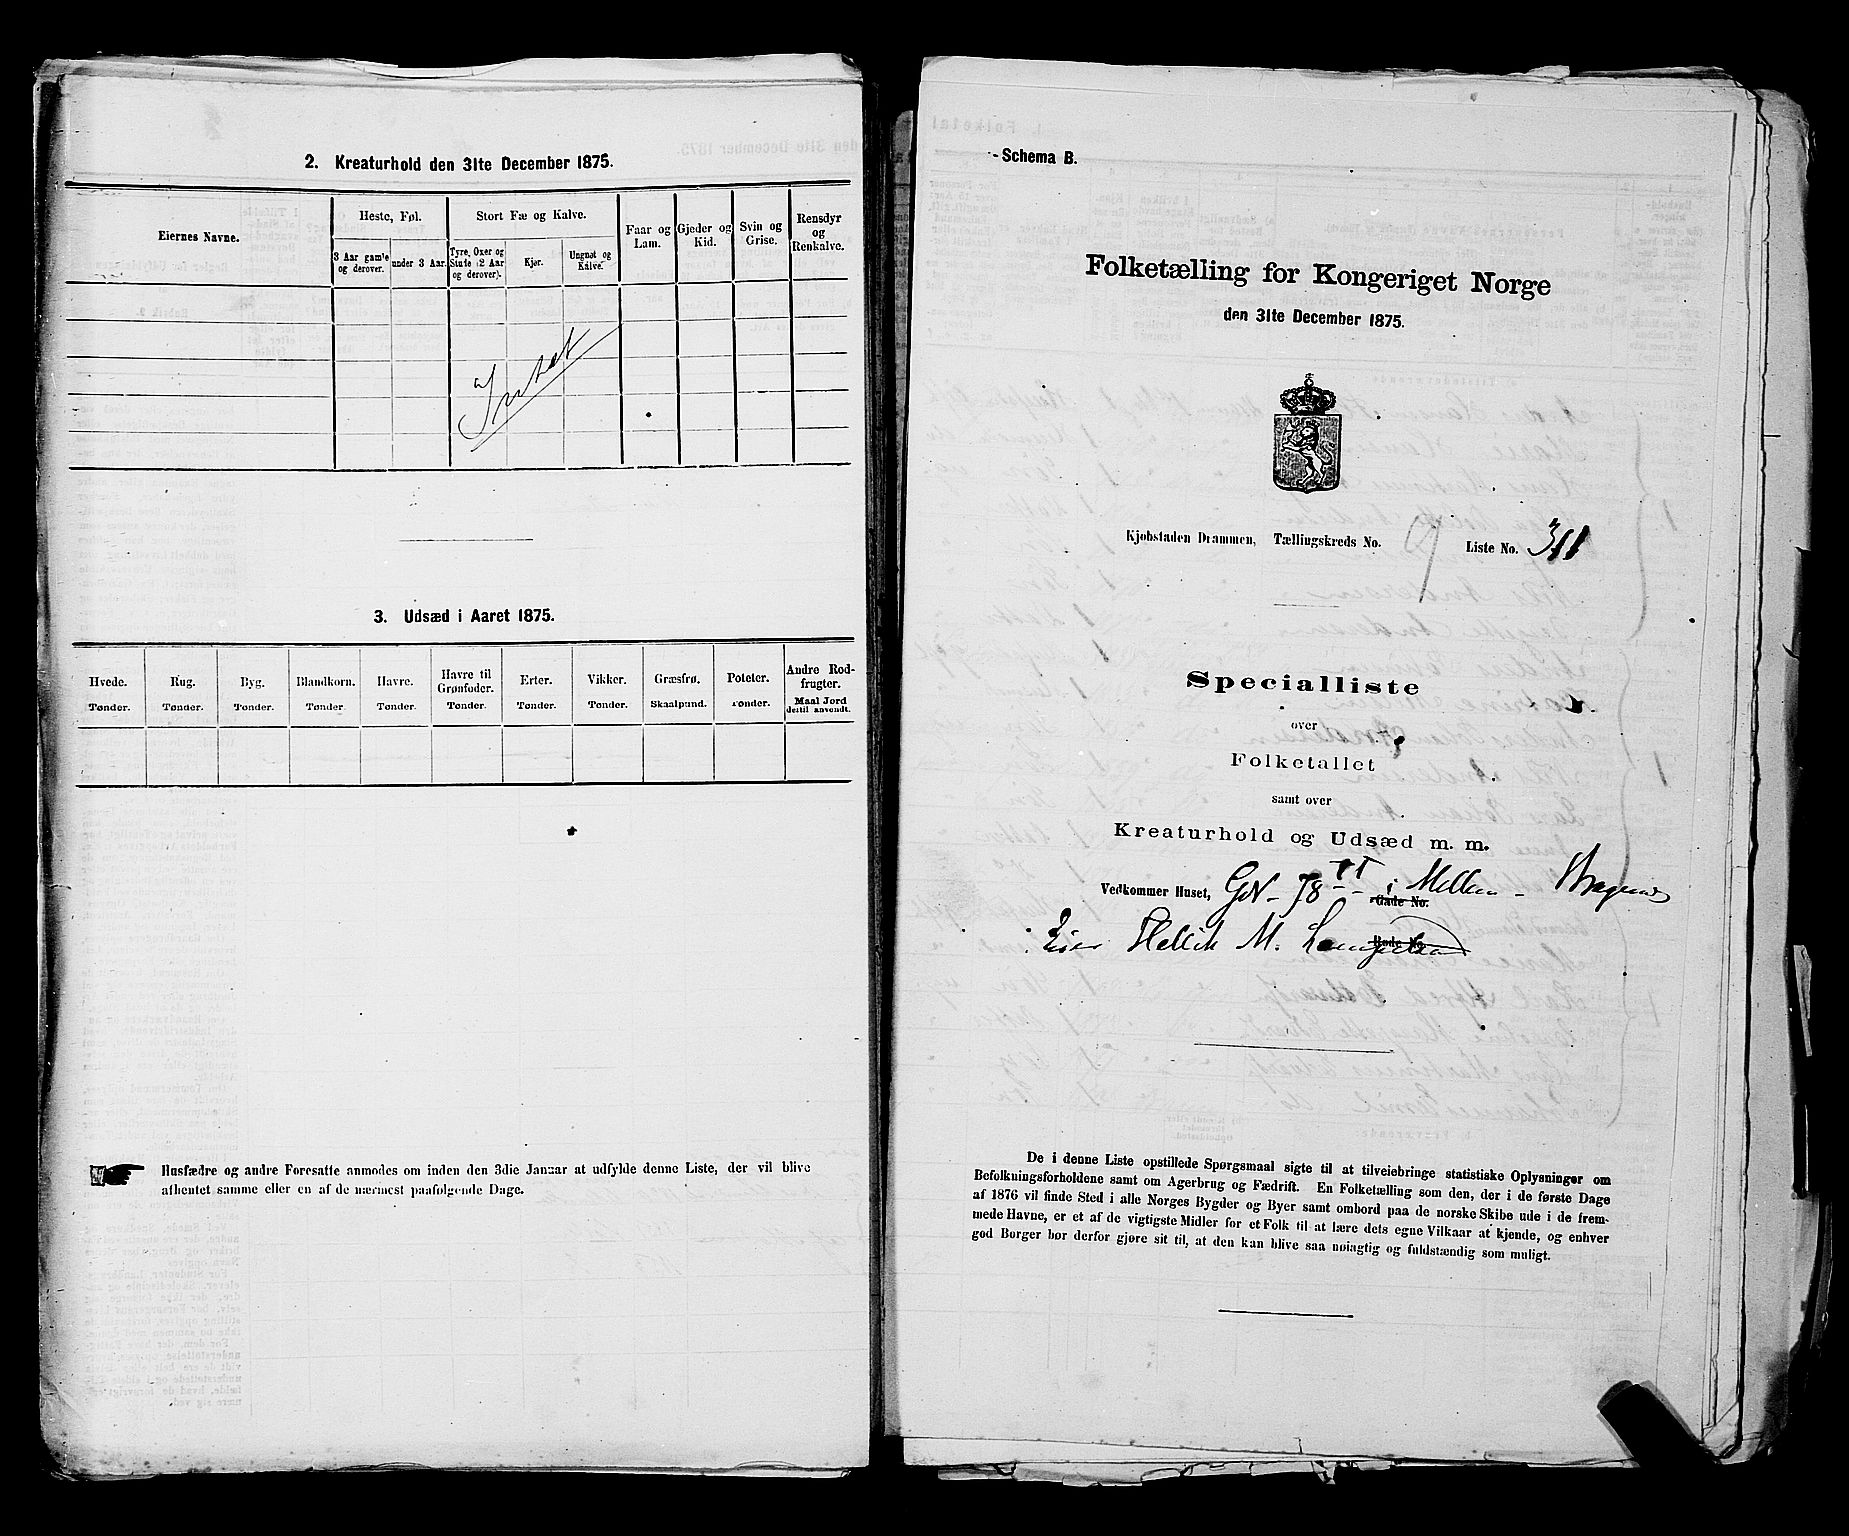 2. Kreaturhold den 31te December 1875.
Eiernes Navne.
Heste, Føl.
3 Aar gamle og derover.
under 3 Aar.
Stort Fæ og Kalve.
Tyre, Oxer og Stude (2 Aar og derover).
Kjør.
Ungnøt og Kalve.
Faar og Lam.
Gjeder og Kid.
Svin og Grise.
Rensdyr og Renkalve.
Intet
3. Udsæd i Aaret 1875.
Hvede. Tønder.
Rug. Tønder.
Byg. Tønder.
Blandkorn. Tønder.
Havre. Tønder.
Havre til Grønfoder. Tønder.
Erter. Tønder.
Vikker. Tønder.
Græsfrø. Skaalpund.
Poteter. Tønder.
Andre Rodfrugter. Maal Jord dertil anvendt.
Husfædre og andre Foresatte anmodes om inden den 3die Januar at udfylde denne Liste, der vil blive
afhentet samme eller en af de nærmest paafølgende Dage.
Schema B.
Folketælling for Kongeriget Norge
den 31te December 1875.
Kjøbstaden Drammen, Tællingskreds No. 9 Liste No. 311
Specialliste
over
Folketallet
samt over
Kreaturhold og Udsæd m. m.
Vedkommer Huset, 78 i Mellem - Bragernes
Gade No.
Eier Hellik M.
Rode No.
De i denne Liste opstillede Spørgsmaal sigte til at tilveiebringe statistiske Oplysninger om
Befolkningsforholdene samt om Agerbrug og Fædrift. En Folketælling som den, der i de første Dage
af 1876 vil finde Sted i alle Norges Bygder og Byer samt ombord paa de norske Skibe ude i de frem-
mede Havne, er et af de vigtigste Midler for et Folk til at lære dets egne Vilkaar at kjende, og enhver
god Borger bør derfor gjøre sit til, at den kan blive saa nøiagtig og fuldstændig som muligt.